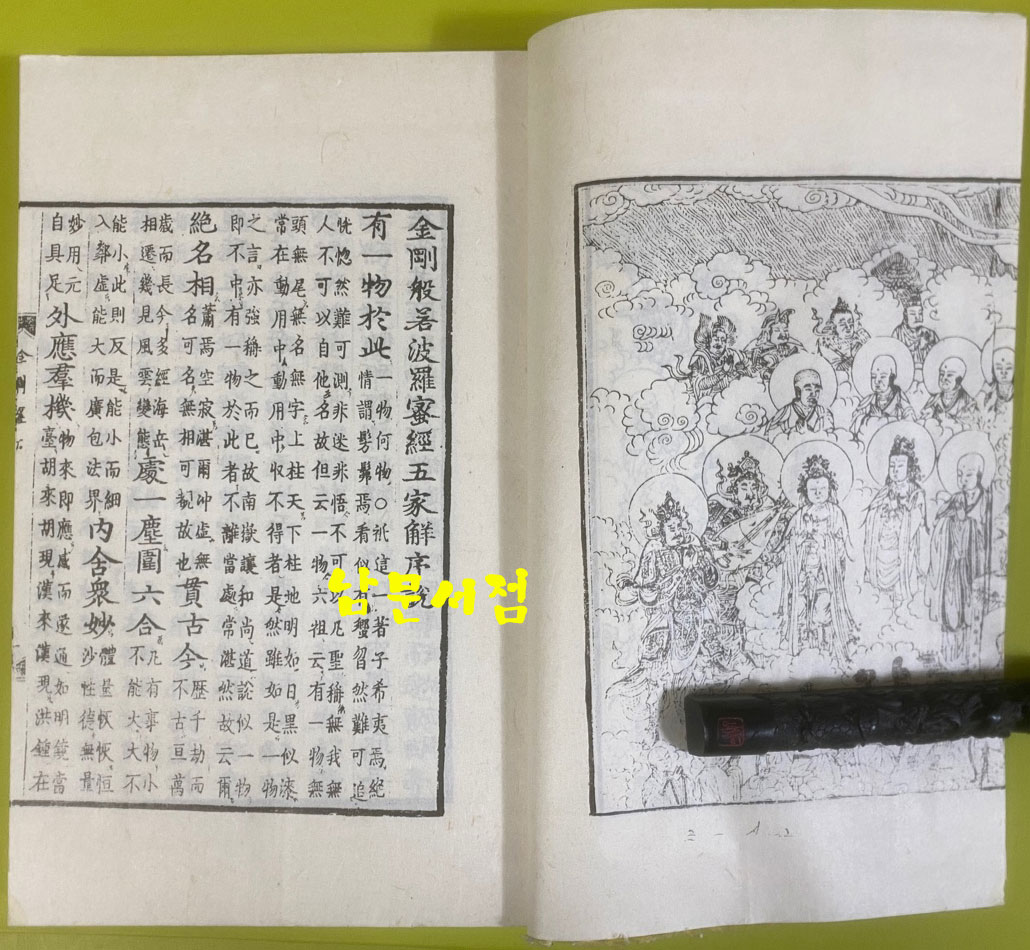 金剛般若波羅蜜經五家解序說
有一物於此
一物何物○祇這一著子希夷焉絕
情謂髣髴焉看似有蠁曶然難可追
恍惚然難可測非迷非悟不可以凡聖稱無我無
人不可以自他名故但云一物六祖云有一物無
頭無尾無名無字上柱天下柱地明如日黑似漆
常在動用中動用中收不得者是然雖如是一物
之言亦強稱之而已故南嶽讓和尚道說似一物
即不中有一物於此者不離當處常湛然故云爾
絕名相
蕭焉空寂湛爾冲虛無
名可名無相可覩故也
貫古今
歷千劫而
不古亘萬
歲而長今多經海岳
相遷幾見風雲變態
處一塵圍六合
凡有事物小
不能大大不
能小此則反是能小而細
入鄰虛能大而廣包法界
內含衆妙
體量恢恢恒
沙性德無量
妙用元
自具足
外應羣機
物來即應感而遂通如明鏡當
臺胡來胡現漢來漢現洪鍾在
金剛經
남문서점